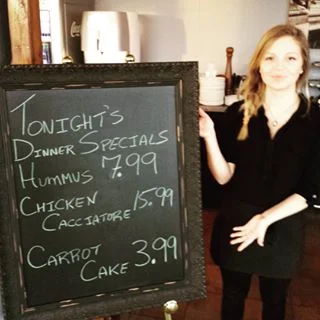 TONIGHT'S
DINNER SPECIALS
HUMMUS 7.99
CHICKEN
CACCIATORE 15.99
CARROT
CAKE 3.99